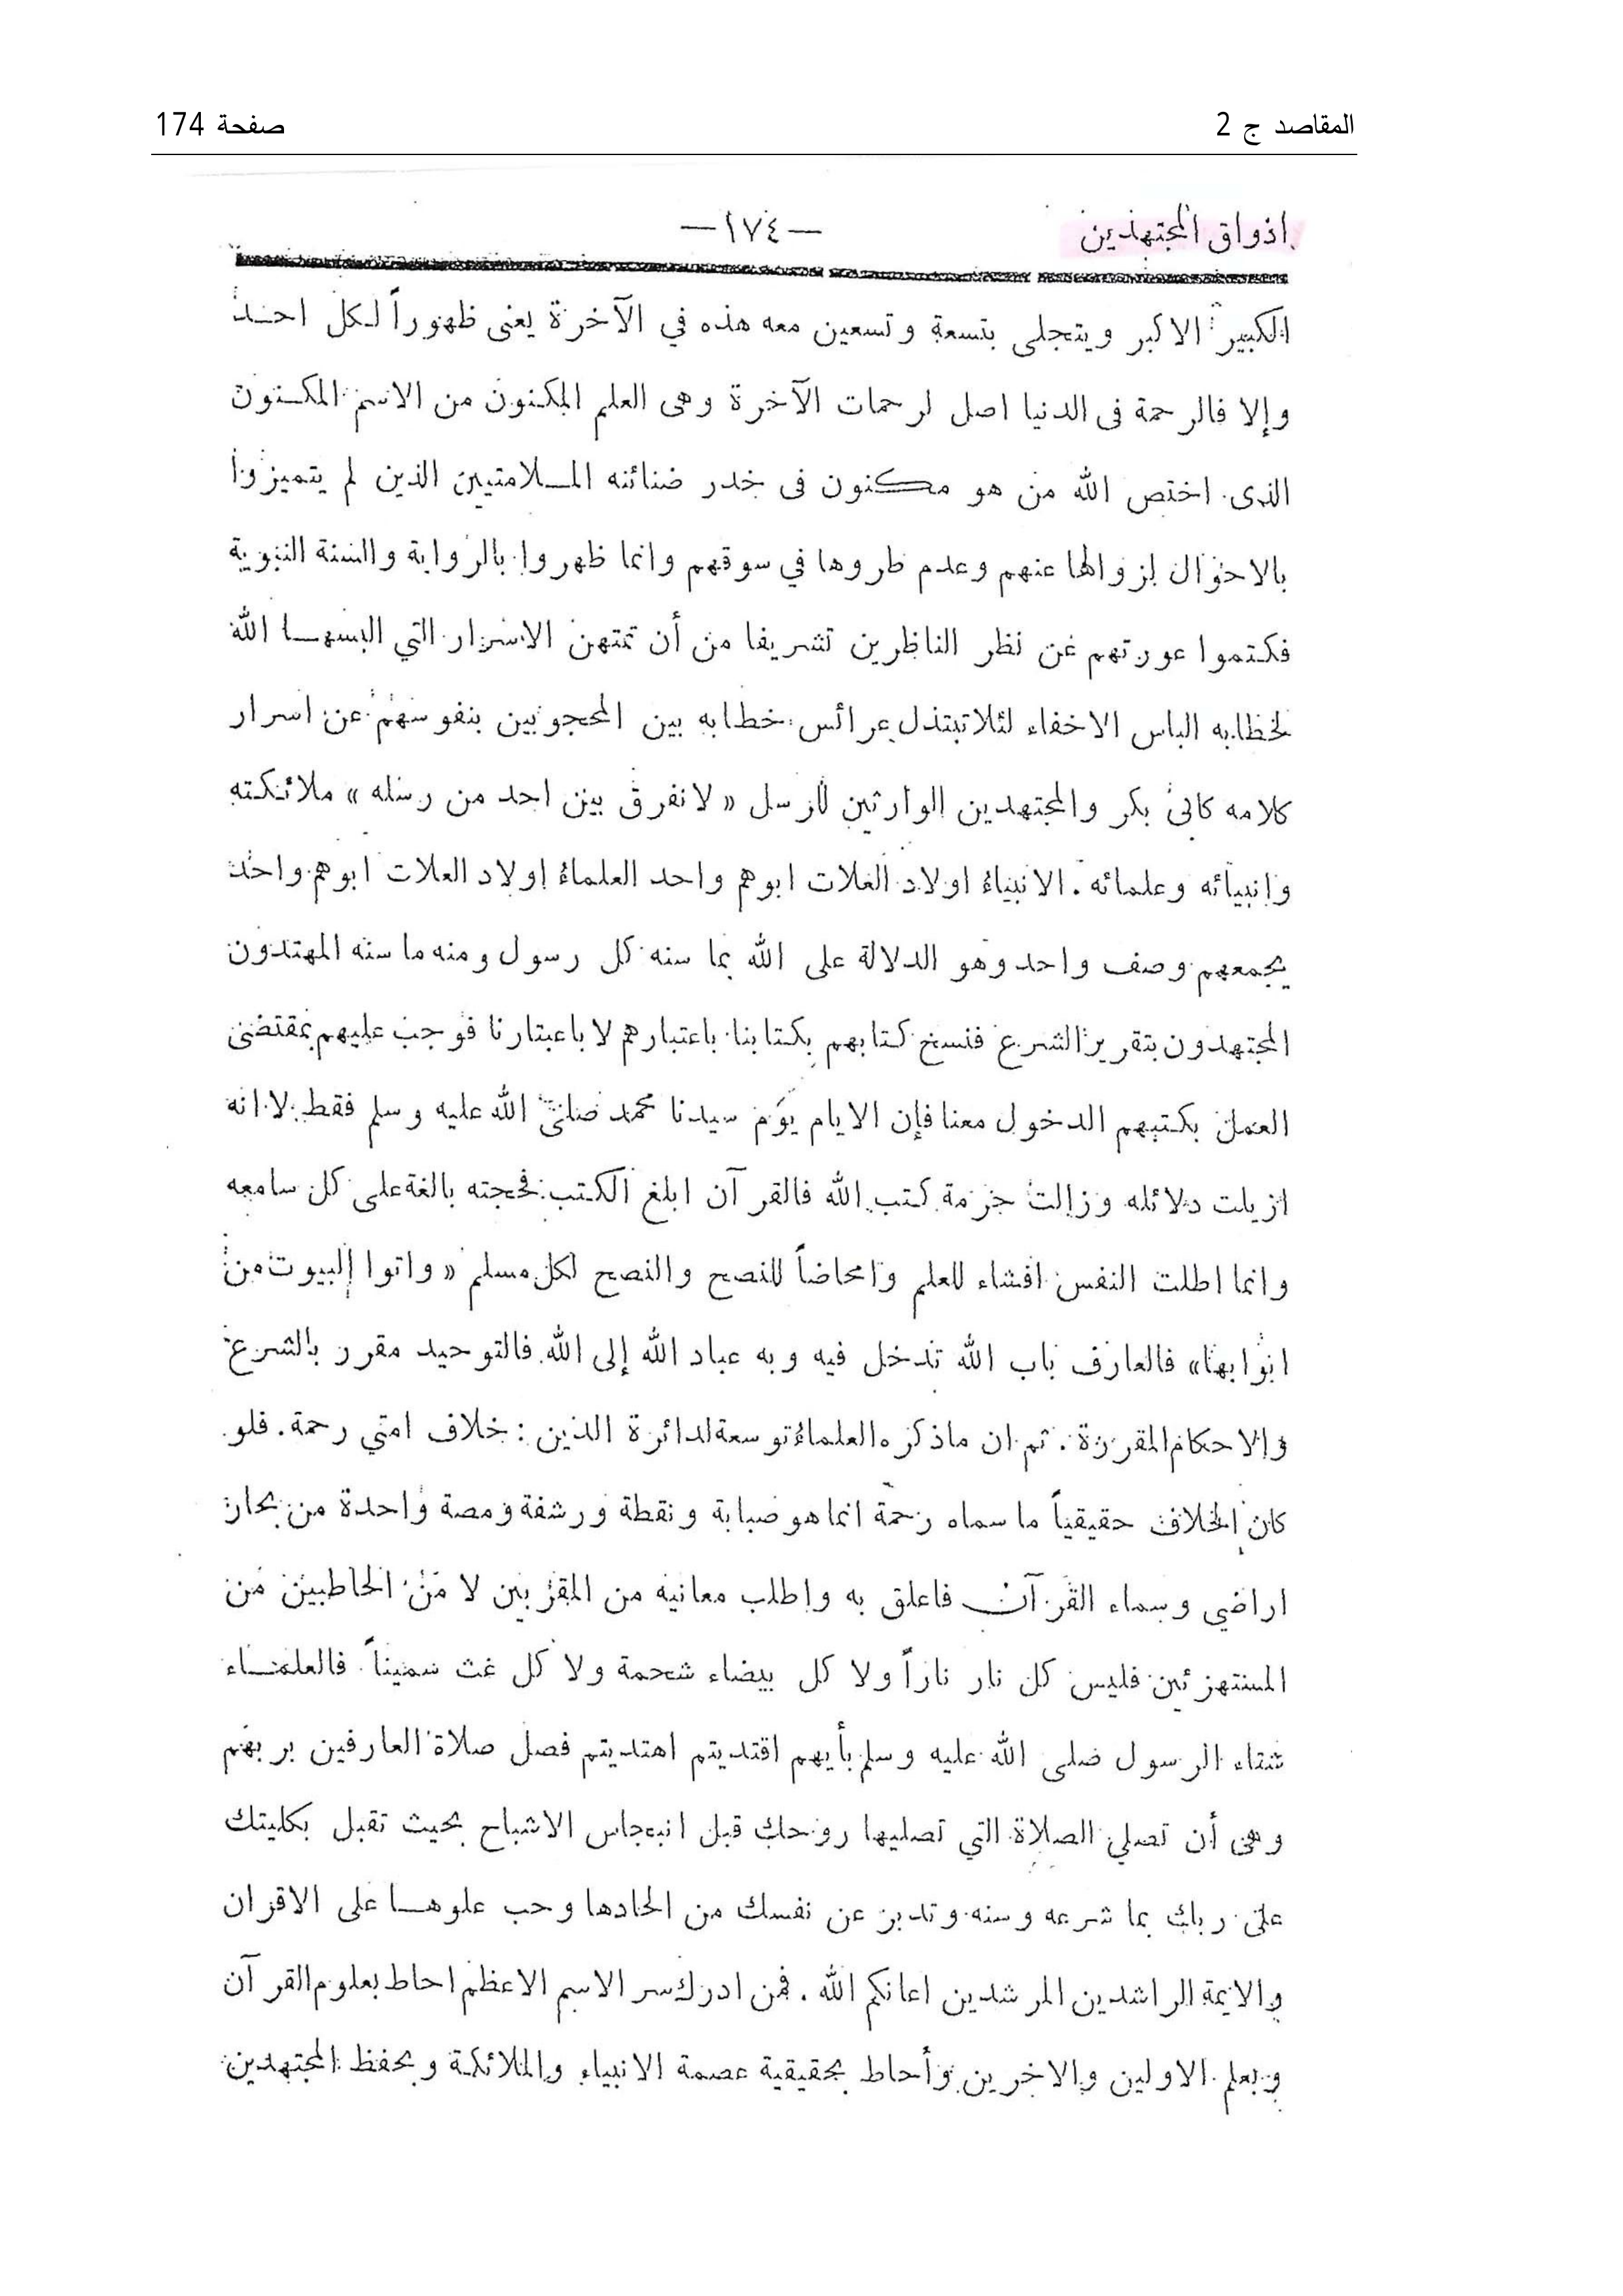 المقاصد ج 2
صفحة 174
اذواق المجتهدين
—١٧٤—
الكبير الاكبر ويتجلى بتسعة وتسعين معه هذه في الآخرة يعنى ظهوراً لكل احد
وإلا فالرحمة فى الدنيا اصل لرحمات الآخرة وهى العلم المكنون من الاسم المكنون
الذى اختص الله من هو مكنون فى خدر ضنائنه الملامتيين الذين لم يتميزوا
بالاحوال لزوالها عنهم وعدم طروها في سوقهم وانما ظهروا بالرواية والسنة النبوية
فكتموا عورتهم عن نظر الناظرين تشريفا من أن تمتهن الاسرار التي البسها الله
لخطابه الباس الاخفاء لئلا تبتذل عرائس خطابه بين المحجوبين بنفوسهم عن اسرار
كلامه كابى بكر والمجتهدين الوارثين للرسل « لا نفرق بين احد من رسله » ملائكته
وانبيائه وعلمائه . الانبياء اولاد العلات ابوهم واحد العلماء اولاد العلات ابوهم واحد
يجمعهم وصف واحد وهو الدلالة على الله بما سنه كل رسول ومنه ما سنه المهتدون
المجتهدون بتقرير الشرع فنسخ كتابهم بكتابنا باعتبارهم لا باعبتارنا فوجب عليهم بمقتضى
العمل بكتبهم الدخول معنا فإن الايام يوم سيدنا محمد صلى الله عليه وسلم فقط لا انه
ازيلت دلائله وزالت حرمة كتب الله فالقرآن ابلغ الكتب فحجته بالغة على كل سامعه
وانما اطلت النفس افشاء للعلم وامحاضاً للنصح والنصح لكل مسلم « واتوا البيوت من
ابوابها » فالعارف باب الله تدخل فيه وبه عباد الله إلى الله فالتوحيد مقرر بالشرع
والاحكام المقررة . ثم ان ماذكره العلماء توسعة لدائرة الدين : خلاف امتي رحمة . فلو
كان الخلاف حقيقياً ما سماه رحمة انما هو صبابة ونقطة ورشفة ومصة واحدة من بحار
اراضي وسماء القرآن فاعلق به واطلب معانيه من المقربين لا من الحاطبين من
المستهزئين فليس كل نار ناراً ولا كل بيضاء شحمة ولا كل غث سميناً فالعلماء
شتاء الرسول صلى الله عليه وسلم بأيهم اقتديتم اهتديتم فصل صلاة العارفين بربهم
وهى أن تصلي الصلاة التي تصليها روحك قبل انبجاس الاشباح بحيث تقبل بكليتك
على ربك بما شرعه وسنه وتدبر عن نفسك من الحادها وحب علوها على الاقران
والايمة الراشدين المرشدين اعانكم الله . فمن ادرك سر الاسم الاعظم احاط بعلوم القرآن
وبعلم الاولين والاخرين وأحاط بحقيقية عصمة الانبياء والملائكة وبحفظ المجتهدين